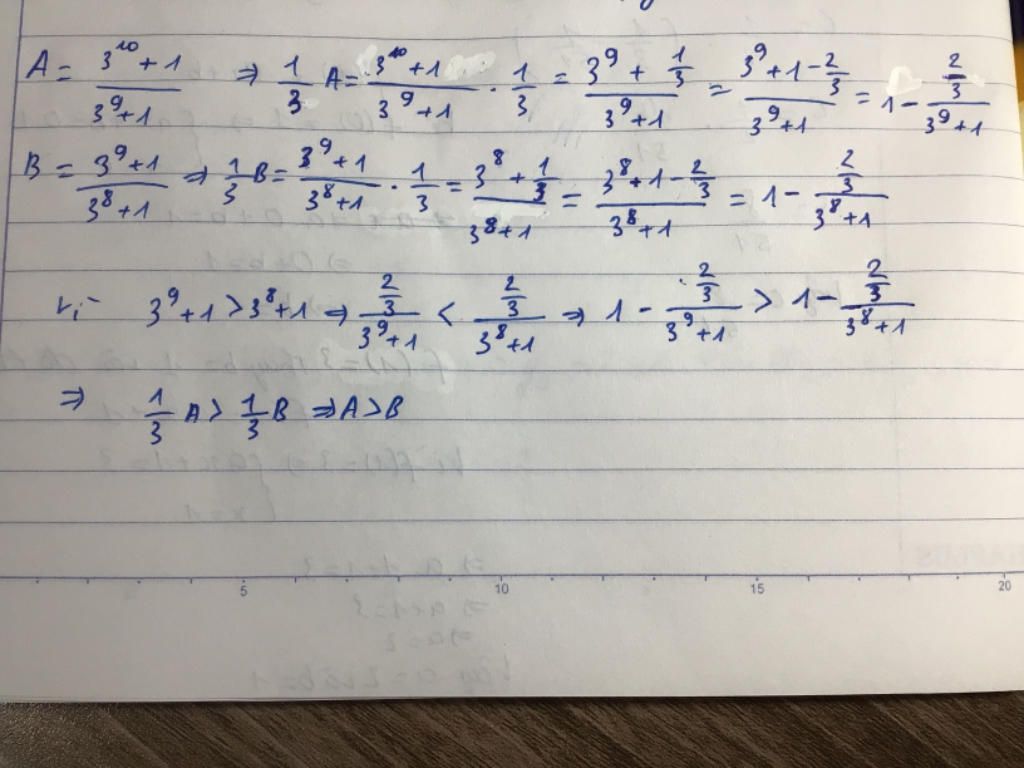 A = (3^10 + 1)/(3^9 + 1) ⇒ 1/3 A = (3^10 + 1)/(3^9 + 1) . 1/3 = (3^9 + 1/3)/(3^9 + 1) = (3^9 + 1 - 2/3)/(3^9 + 1) = 1 - (2/3)/(3^9 + 1)
B = (3^9 + 1)/(3^8 + 1) ⇒ 1/3 B = (3^9 + 1)/(3^8 + 1) . 1/3 = (3^8 + 1/3)/(3^8 + 1) = (3^8 + 1 - 2/3)/(3^8 + 1) = 1 - (2/3)/(3^8 + 1)
Vì 3^9 + 1 > 3^8 + 1 ⇒ (2/3)/(3^9 + 1) < (2/3)/(3^8 + 1) ⇒ 1 - (2/3)/(3^9 + 1) > 1 - (2/3)/(3^8 + 1)
⇒ 1/3 A > 1/3 B ⇒ A > B
5 10 15 20